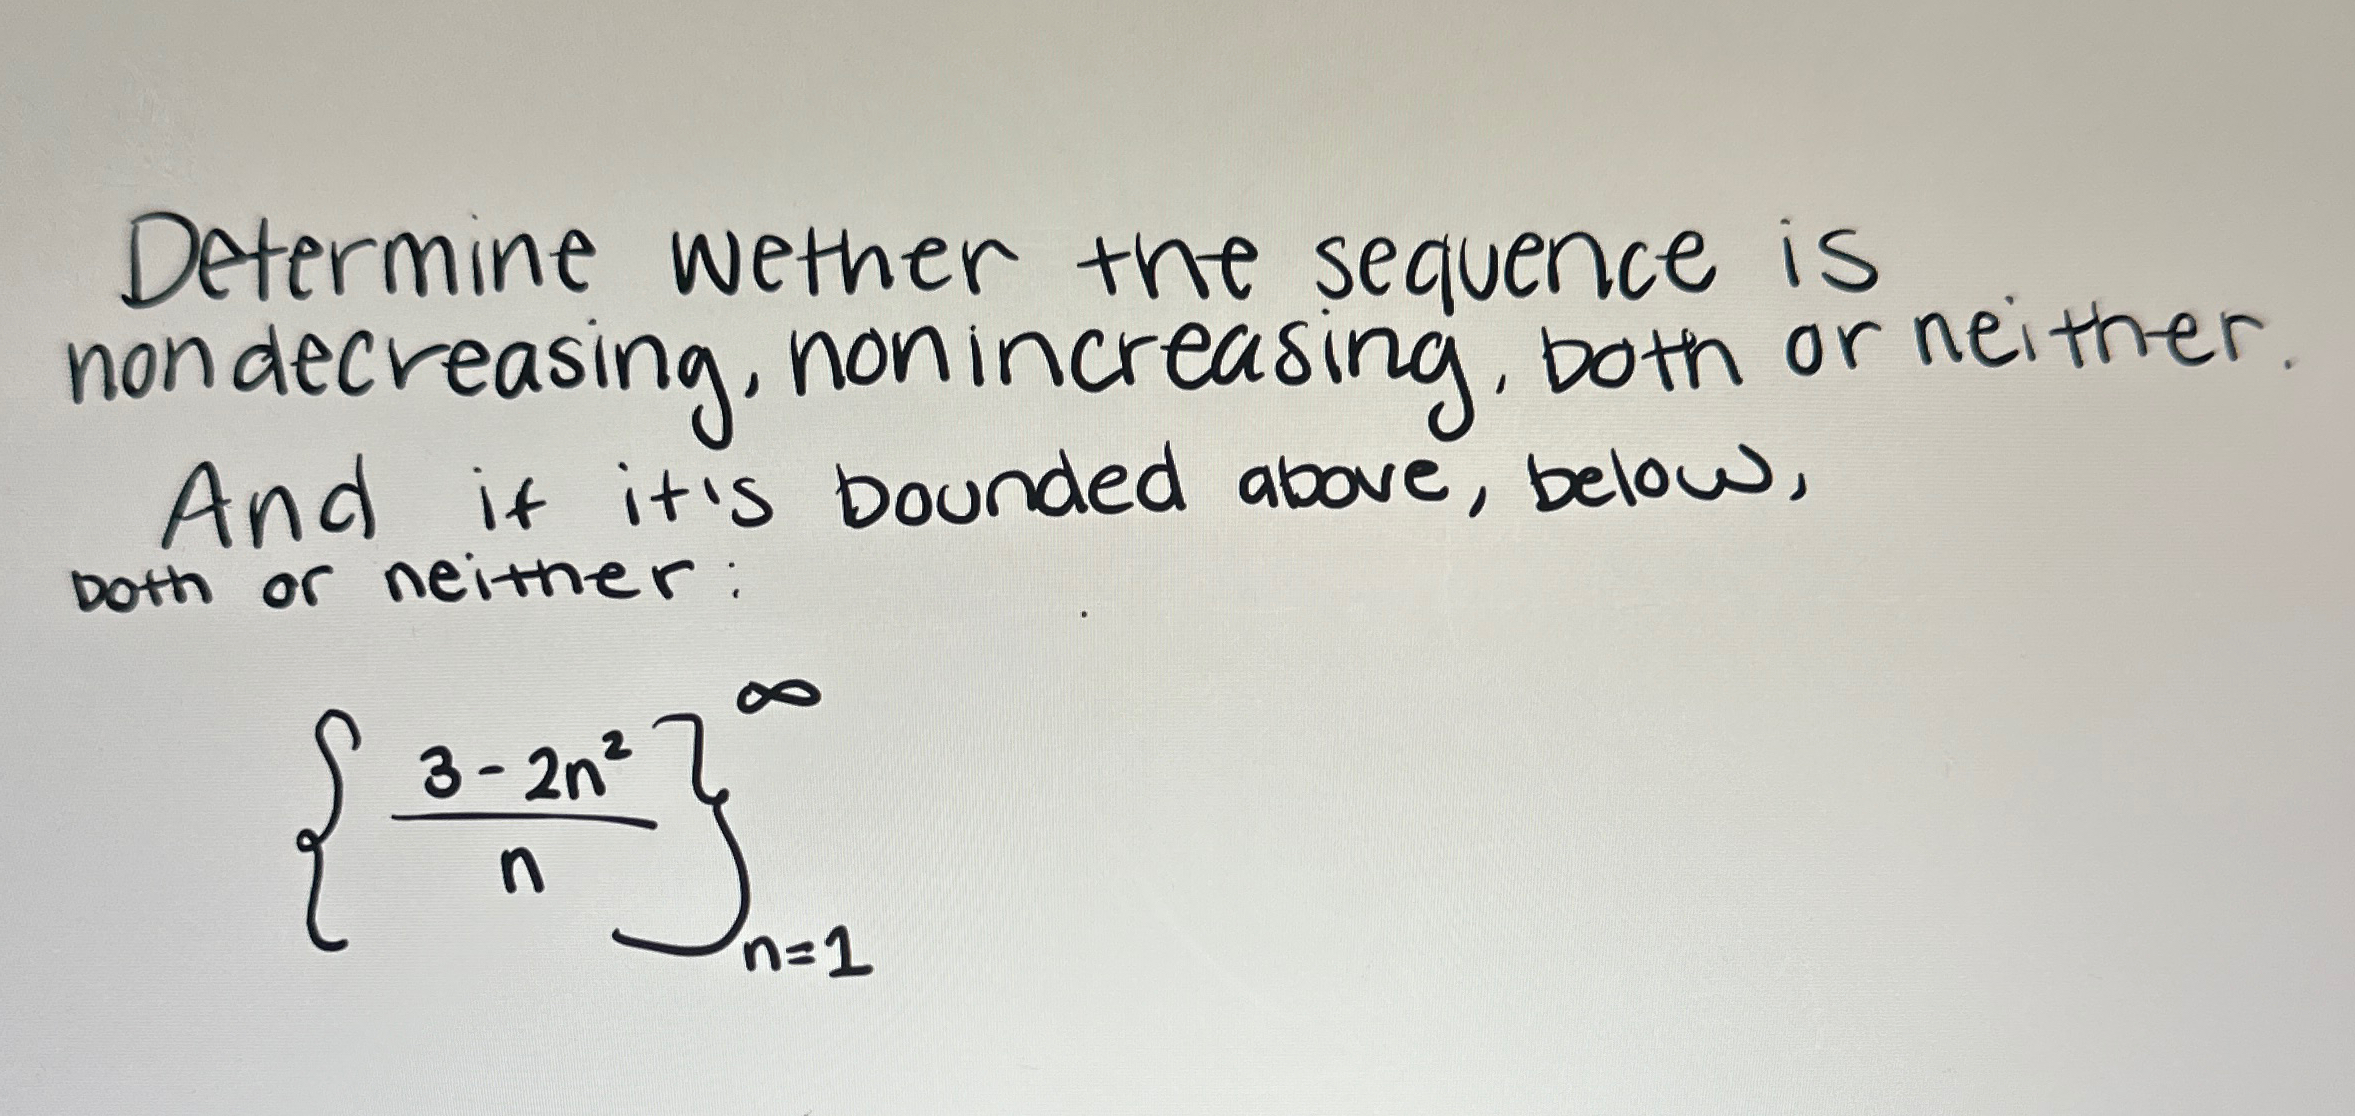 Determine wether the sequence is
nondecreasing, nonincreasing, both or neither.
And if it's bounded above, below,
both or neither:
{ (3-2n²)/n }^∞_{n=1}